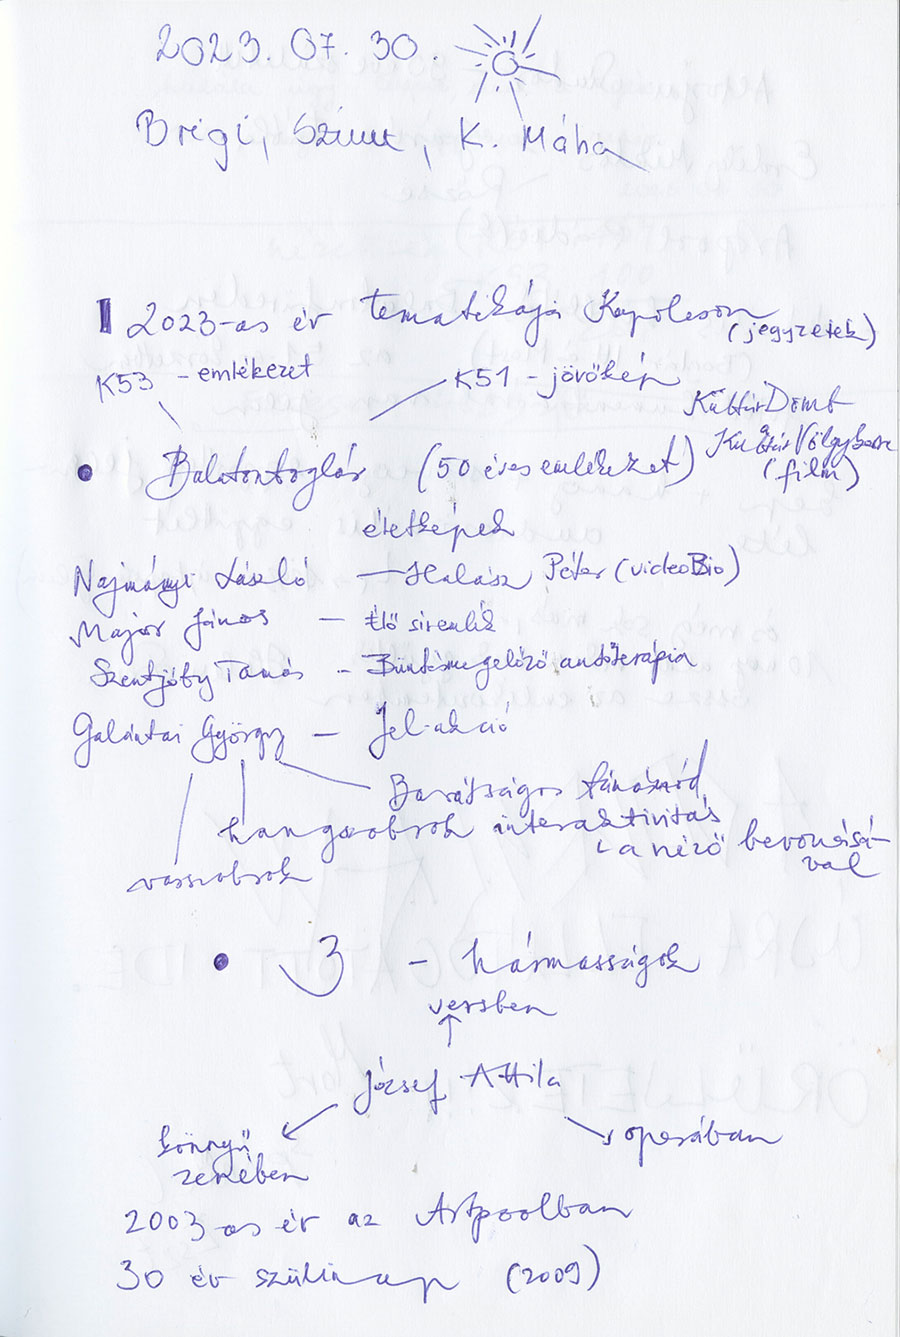 2023.07.30.
Brigi, K. Máha
2023-as év tematikája Kapolcson
(jegyzetek)
K53 - emlékezet
K51 - jövőkép
KultúrDomb
KultúrVölgyben
(film)
Balatonboglár (50 éves emlékezet)
életképek
Najmányi László — Halász Péter (videoBio)
Major János — Élő síremlék
Szentjóby Tamás - Büntetésmegelőző autóterápia
Galántai György — Jel-akció
Barátságos
hangszobrok interaktivitás
a néző bevonásá-
val
vasszobrok
3 - hármasságok
versben
József Attila
könnyű
zenében
operában
2003-as év az Artpoolban
30 év szülinap (2009)